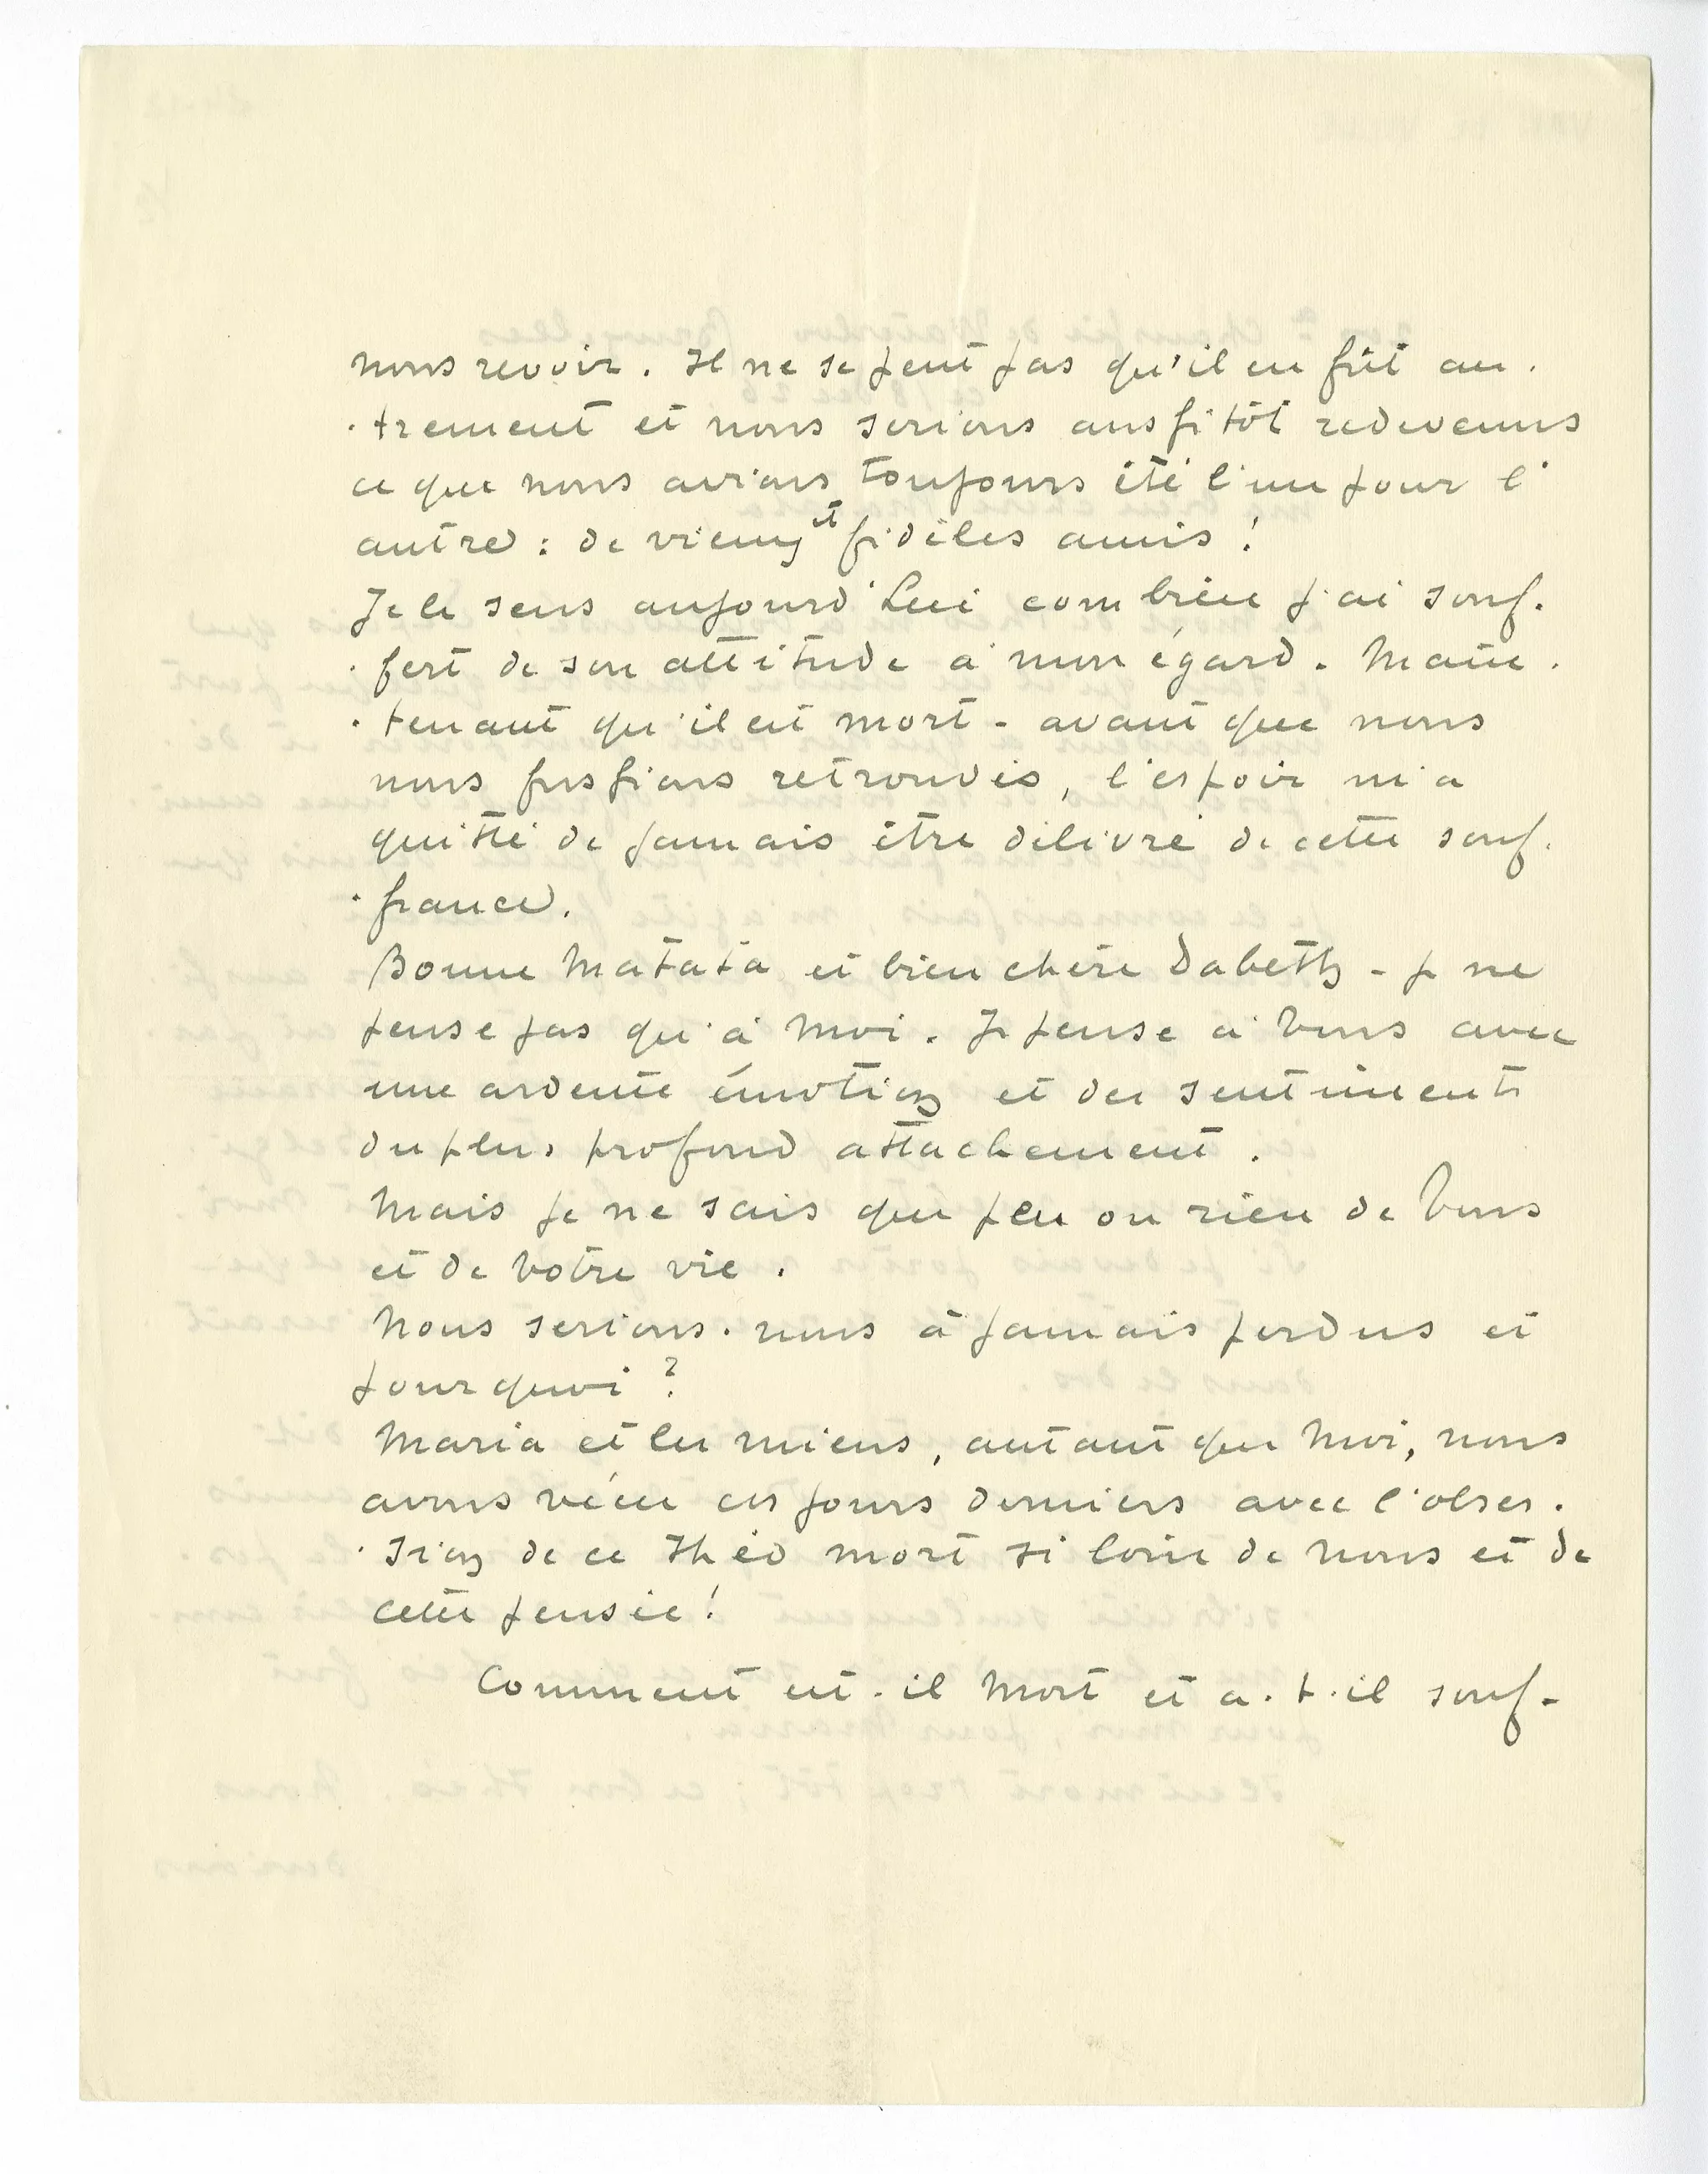 nous revoir. Il ne se peut pas qu'il en fût au.
. trement et nous serions aussitôt redevenus
ce que nous avions toujours été l'un pour l'
autre : de vieux et fidèles amis !
Je le sens aujourd'hui combien j'ai souf.
. fert de son attitude à mon égard. Main.
. tenant qu'il est mort - avant que nous
nous fussions retrouvés, l'espoir m'a
quitté de jamais être délivré de cette souf.
. france.
Bonne Matata et bien chère Dabeth - je ne
pense pas qu'à moi. Je pense à Vous avec
une ardente émotion et des sentiments
du plus profond attachement.
Mais je ne sais que peu ou rien de Vous
et de Votre vie.
Nous serions-nous à jamais perdus et
pourquoi ?
Maria et les miens, autant que moi, nous
avons vécu ces jours derniers avec l'obses.
. sion de ce Théo mort si loin de nous et de
cette pensée !
Comment est-il mort et a-t-il souf-